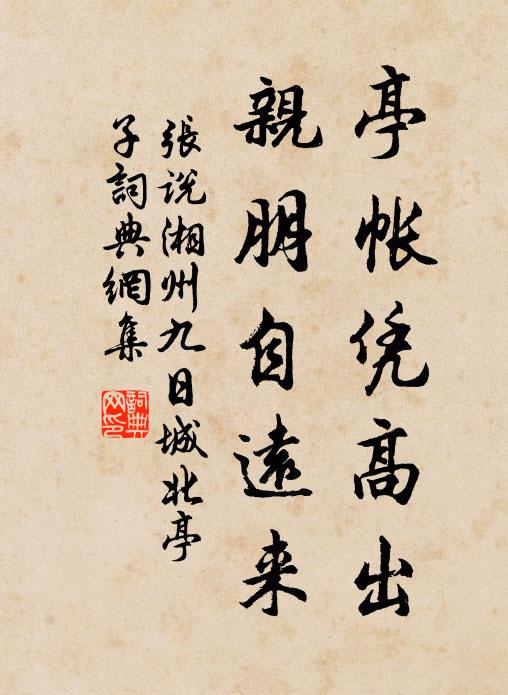 亭帐凭高出
親朋自遠来
張说湘州九日城北亭
子詞典網集
詞典
网印